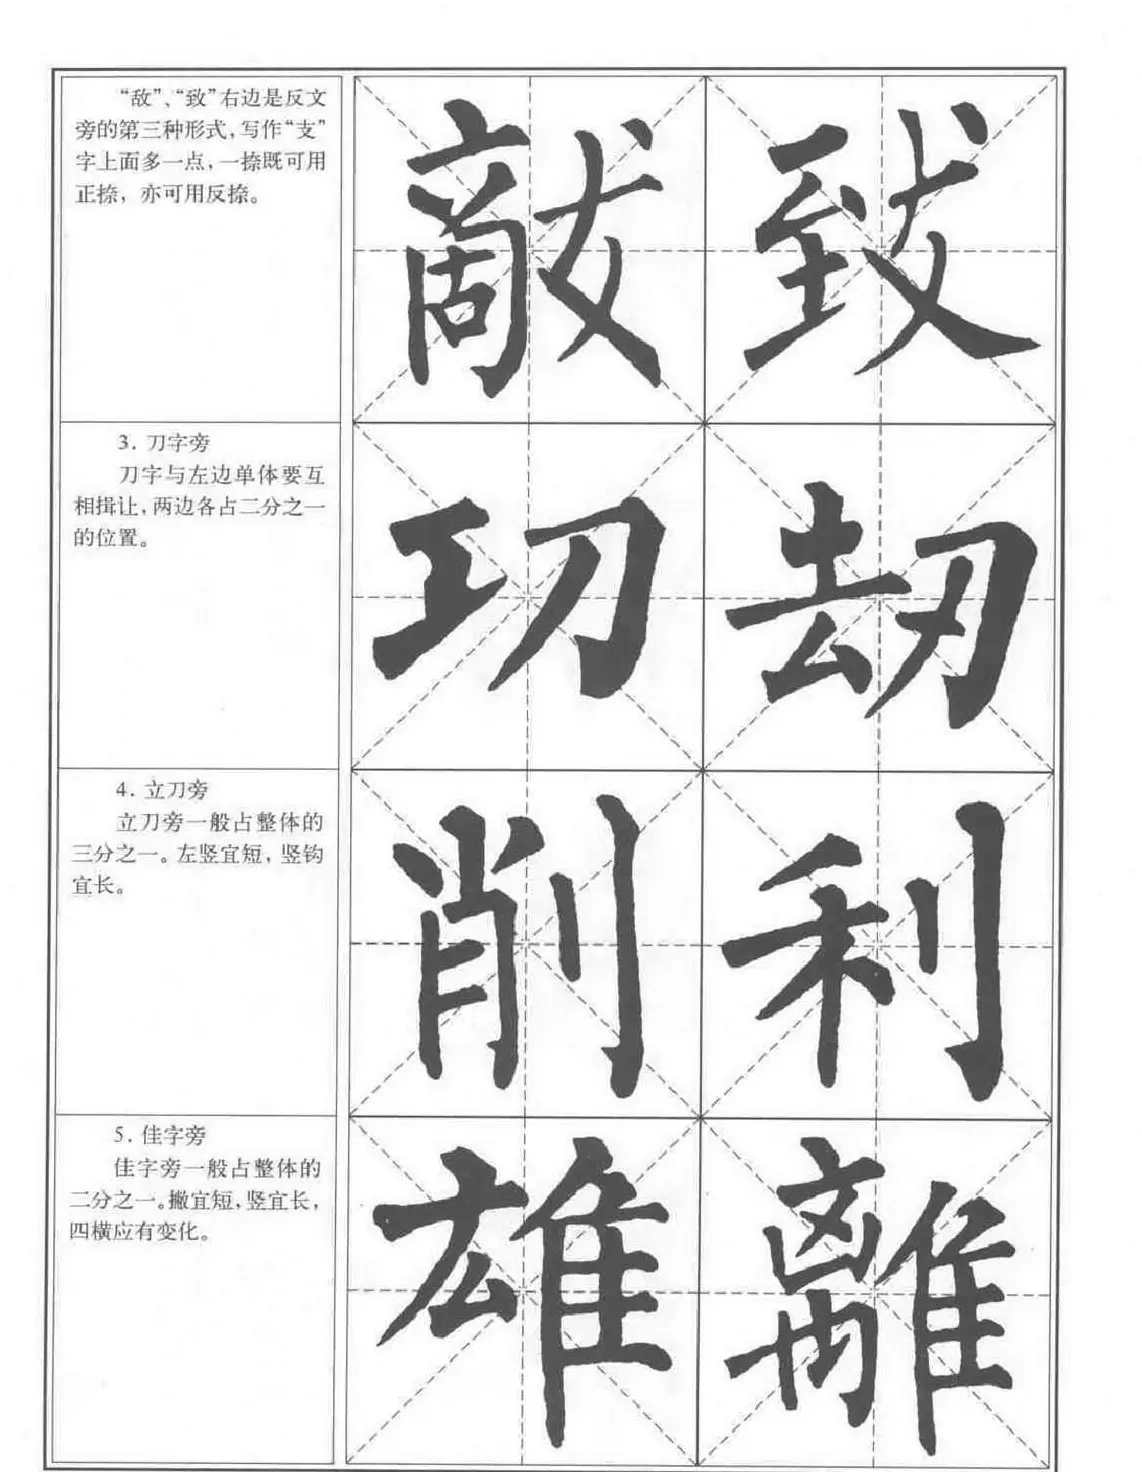 “敌”、“致”右边是反文
旁的第三种形式，写作“支”
字上面多一点，一捺既可用
正捺，亦可用反捺。
敵 致
3. 刀字旁
刀字与左边单体要互
相揖让，两边各占二分之一
的位置。
㓛 刧
4. 立刀旁
立刀旁一般占整体的
三分之一。左竖宜短，竖钩
宜长。
削 利
5. 隹字旁
隹字旁一般占整体的
二分之一。撇宜短，竖宜长，
四横应有变化。
雄 離